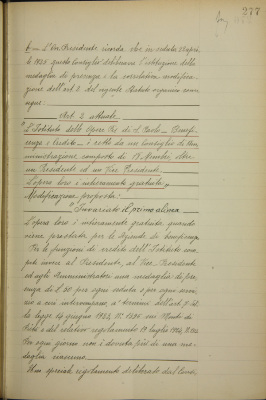 277
6 - L'On. Presidente ricorda che in seduta 1 April
le 1925 questo Consiglio deliberava l'istituzione della
medaglia di presenza e la correlativa modifica
zione dell'art. 2 del vigente Statuto organico com
unque:
Art. 2 attuale
"L'Istituto delle Opere Pie di S. Paolo - Benefi
cenza e Credito - è retto da un Consiglio di Am
ministrazione composto di 19 Membri, oltre
un Presidente ed un Vice Presidente.
L'opera loro è interamente gratuita"
Modificazione proposta:
"Invariato il primo alinea
L'opera loro è interamente gratuita quando
viene prestata per le Aziende di beneficenza.
Per le funzioni di credito dell'Istituto com
pete invece al Presidente, al Vice Presidente
ed agli Amministratori una medaglia di pre
senza di L. 20 per ogni seduta e per ogni servi
zio a cui intervengono, a termini dell'art.
la legge 14 giugno 1923, N. 1396 sui Monti di
Pietà e del relativo regolamento 19 luglio 1924, N.
Per ogni giorno non è dovuta più di una me
daglia ciascuno.
Uno speciale regolamento deliberato dal Consi